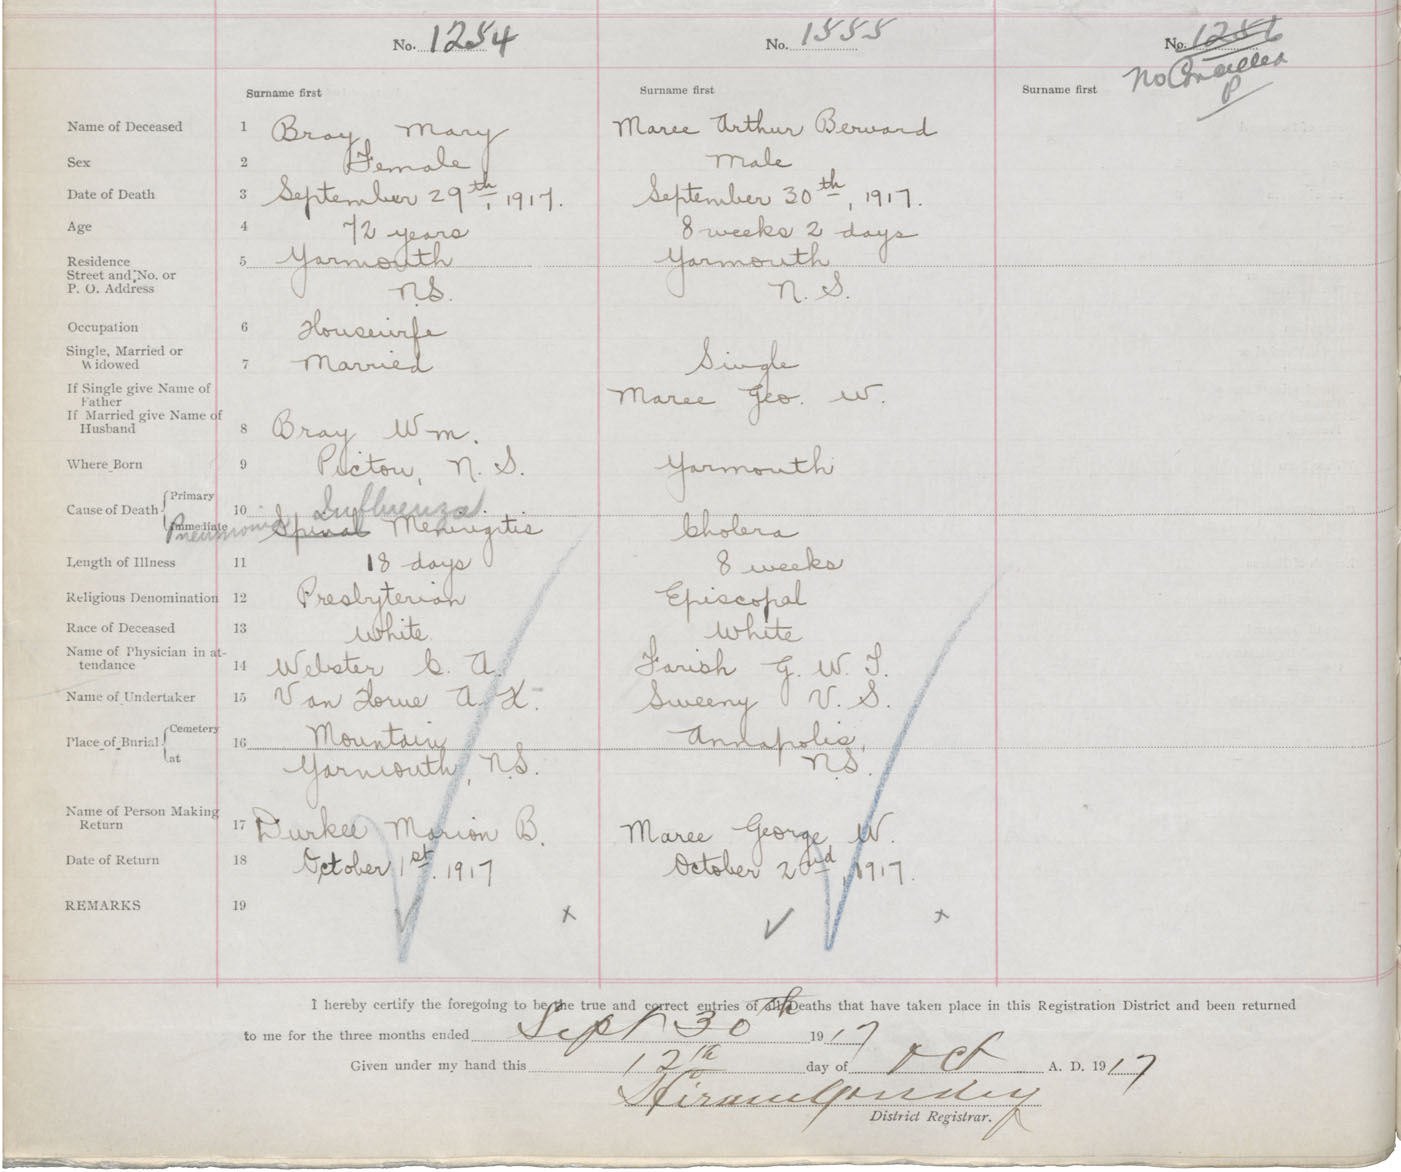 No. 1254 No. 1555 No. 1256
No Cancelled
P
Surname first Surname first Surname first
Name of Deceased 1 Bray Mary Maree Arthur Bernard
Sex 2 Female Male
Date of Death 3 September 29th, 1917. September 30th, 1917.
Age 4 72 years 8 weeks 2 days
Residence 5 Yarmouth Yarmouth
Street and No. or
P. O. Address N.S. N. S.
Occupation 6 Housewife
Single, Married or
Widowed 7 Married Single
If Single give Name of
Father Maree Geo. W.
If Married give Name of
Husband 8 Bray Wm.
Where Born 9 Pictou, N. S. Yarmouth
Primary Influenza
Cause of Death 10
Immediate Pneumonia Spinal Meningitis Cholera
Length of Illness 11 18 days 8 weeks
Religious Denomination 12 Presbyterian Episcopal
Race of Deceased 13 White White
Name of Physician in at-
tendance 14 Webster C. A. Farish G. W. T.
Name of Undertaker 15 Van Horne A. K. Sweeny V. S.
Cemetery Mountain Annapolis,
Place of Burial 16
at Yarmouth, N.S. N.S.
Name of Person Making
Return 17 Durkee Marion B. Maree George W.
Date of Return 18 October 1st. 1917 October 2nd, 1917.
REMARKS 19 x ✓ x
I hereby certify the foregoing to be the true and correct entries of all Deaths that have taken place in this Registration District and been returned
to me for the three months ended Sept 30th 1917
Given under my hand this 12th day of Oct A. D. 1917
Hiram Goudey
District Registrar.